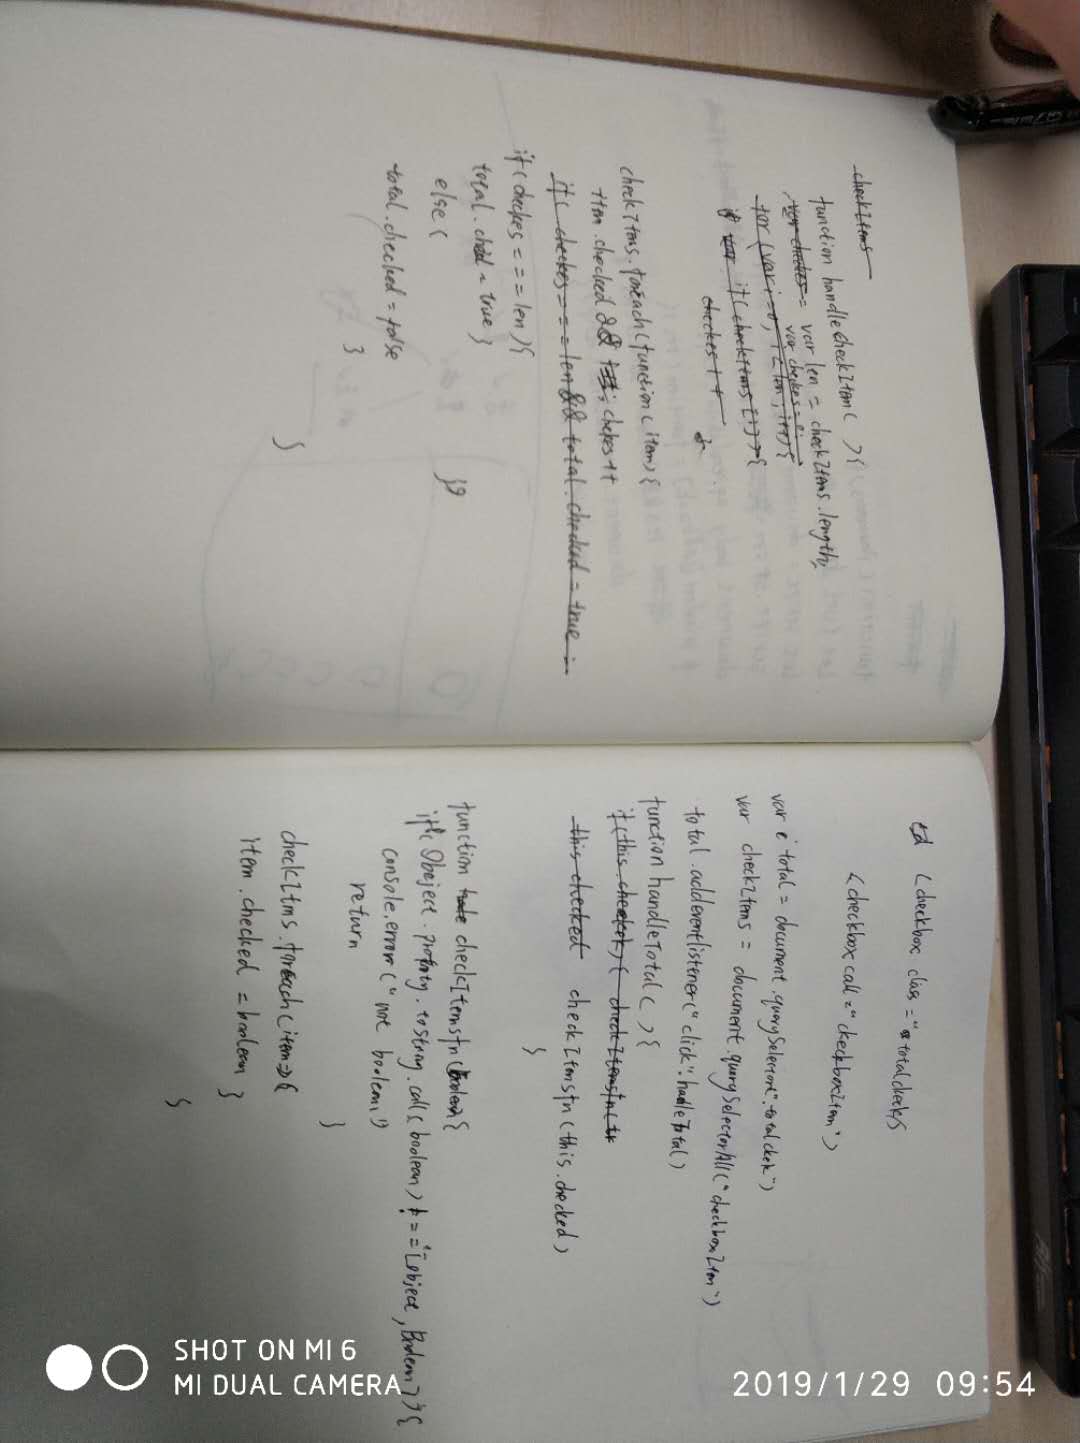 checkItms
function handlecheckItem( ){
var checkes = var len = checkItems.length;
var checkes = 0;
for (var i=0, i<len, i++){
if (checkItems[i]){
checkes++
}
checkItms.foreach(function(item){
item.checked && chekes++
if( checkes===len && total.checked = true
if(checkes===len){
total. = true }
})
else{
total.checked = false
}
}
<checkbox class="totalcheck/>
<checkbox call="ckeckboxItem")
var total = document.querySelector(".totalchek")
var checkItems = document.querySelectorAll("checkboxItem")
total.addeventlistener("click".handleTotal)
function handleTotal( ){
if(this.checked){ checkItemsfn(tr
this checked checkItemsfn(this.checked)
}
function checkItemsfn(boolean){
if( Obeject. .tostring.call(boolean)!=='[object, Boolean]'){
console.error("not boolean!")
return
}
checkItms.foreach(item=>{
item.checked = boolean }
}
SHOT ON MI 6
MI DUAL CAMERA
2019/1/29 09:54